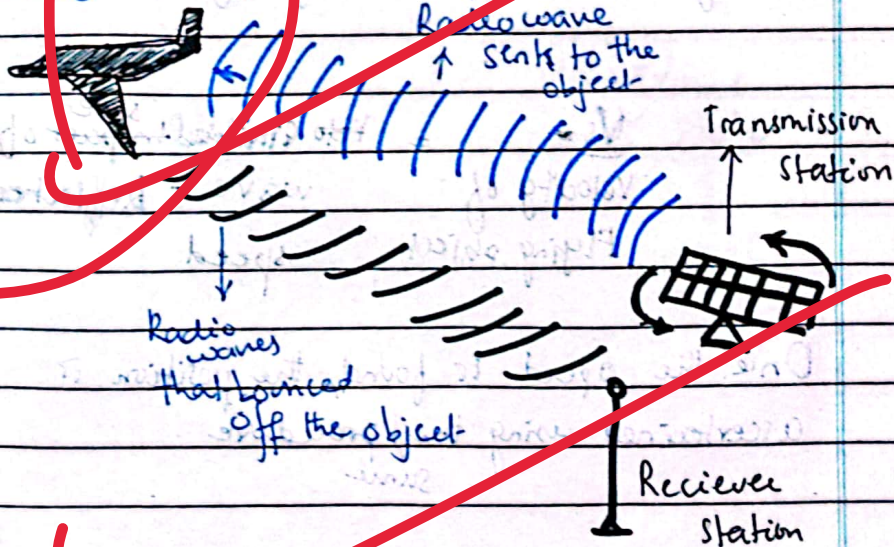 Radio wave
sent to the
object
Transmission
station
Radio
waves
that bounced
off the object
Reciever
station